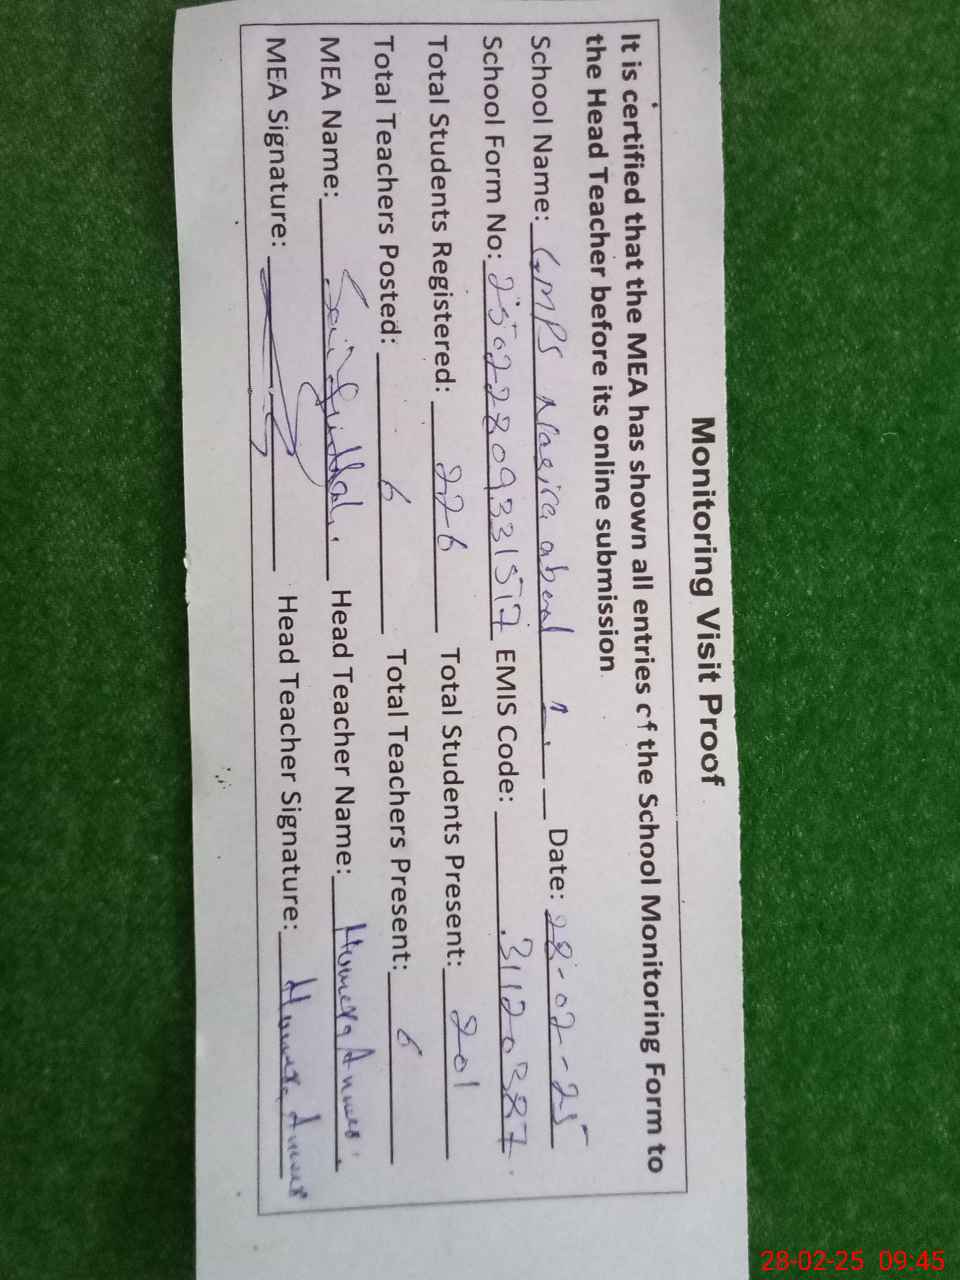 Monitoring Visit Proof
It is certified that the MEA has shown all entries of the School Monitoring Form to
the Head Teacher before its online submission
School Name: GMPS Date: 28-02-25
School Form No: 25022809331517 EMIS Code: 31120387
Total Students Registered: 226 Total Students Present: 201
Total Teachers Posted: 6 Total Teachers Present: 6
MEA Name: Head Teacher Name: Humera
MEA Signature: Head Teacher Signature: Humera
28-02-25 09:45